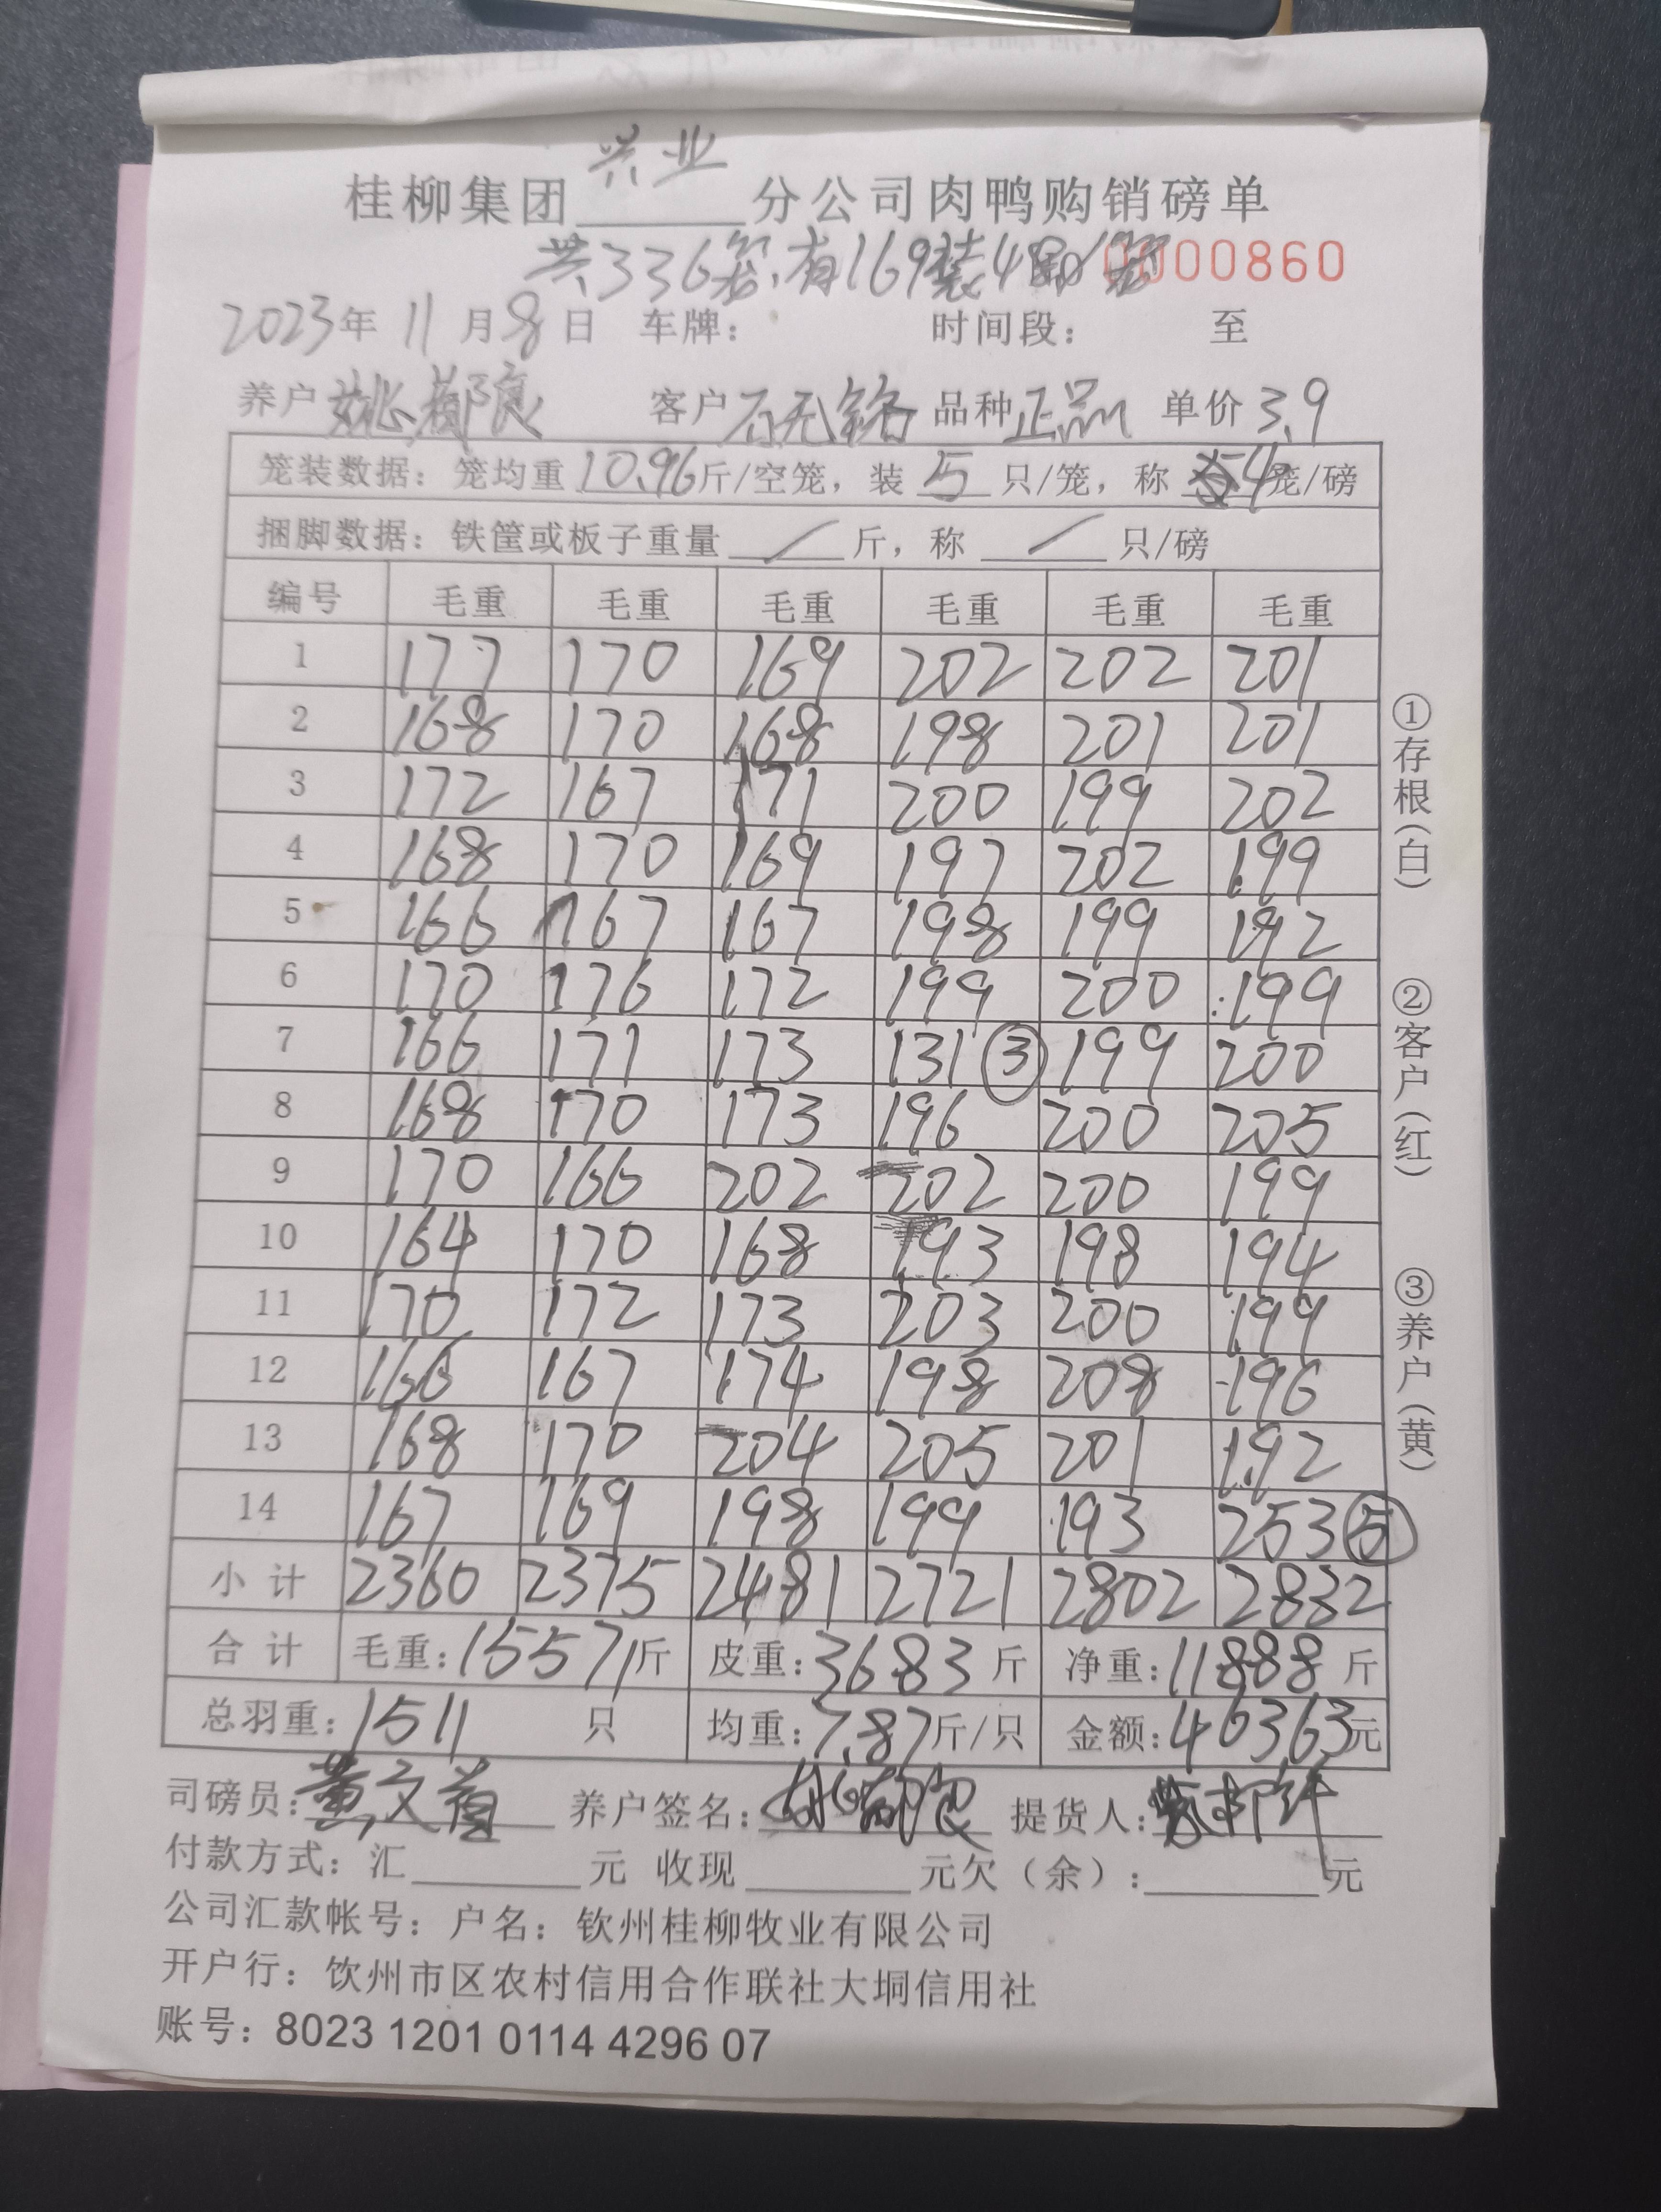 桂柳集团 兴业 分公司肉鸭购销磅单
共336笼,有169装4只/笼
0000860
2023年 11 月 8 日 车牌: 时间段: 至
养户 姚郁良 客户 石无铭 品种 正品 单价 3.9
笼装数据: 笼均重 10.96 斤/空笼, 装 5 只/笼, 称 4 笼/磅
捆脚数据: 铁筐或板子重量 / 斤, 称 / 只/磅
编号 毛重 毛重 毛重 毛重 毛重 毛重
1 177 170 169 202 202 201
2 168 170 168 198 201 201
3 172 167 171 200 199 202
4 168 170 169 197 202 199
5 166 167 167 198 199 192
6 170 176 172 199 200 199
7 166 171 173 131 ③ 199 200
8 168 170 173 196 200 205
9 170 166 202 202 200 199
10 164 170 168 193 198 194
11 170 172 173 203 200 199
12 166 167 174 198 208 196
13 168 170 204 205 201 192
14 167 169 198 199 193 253 ⑤
小计 2360 2375 2481 2721 2802 2832
合计 毛重: 15571 斤 皮重: 3683 斤 净重: 11888 斤
总羽重: 1511 只 均重: 7.87 斤/只 金额: 46363 元
司磅员: 黄文首 养户签名: 提货人:
付款方式: 汇 元 收现 元欠(余): 元
公司汇款帐号: 户名: 钦州桂柳牧业有限公司
开户行: 饮州市区农村信用合作联社大垌信用社
账号: 8023 1201 0114 4296 07
①存根(白)
②客户(红)
③养户(黄)